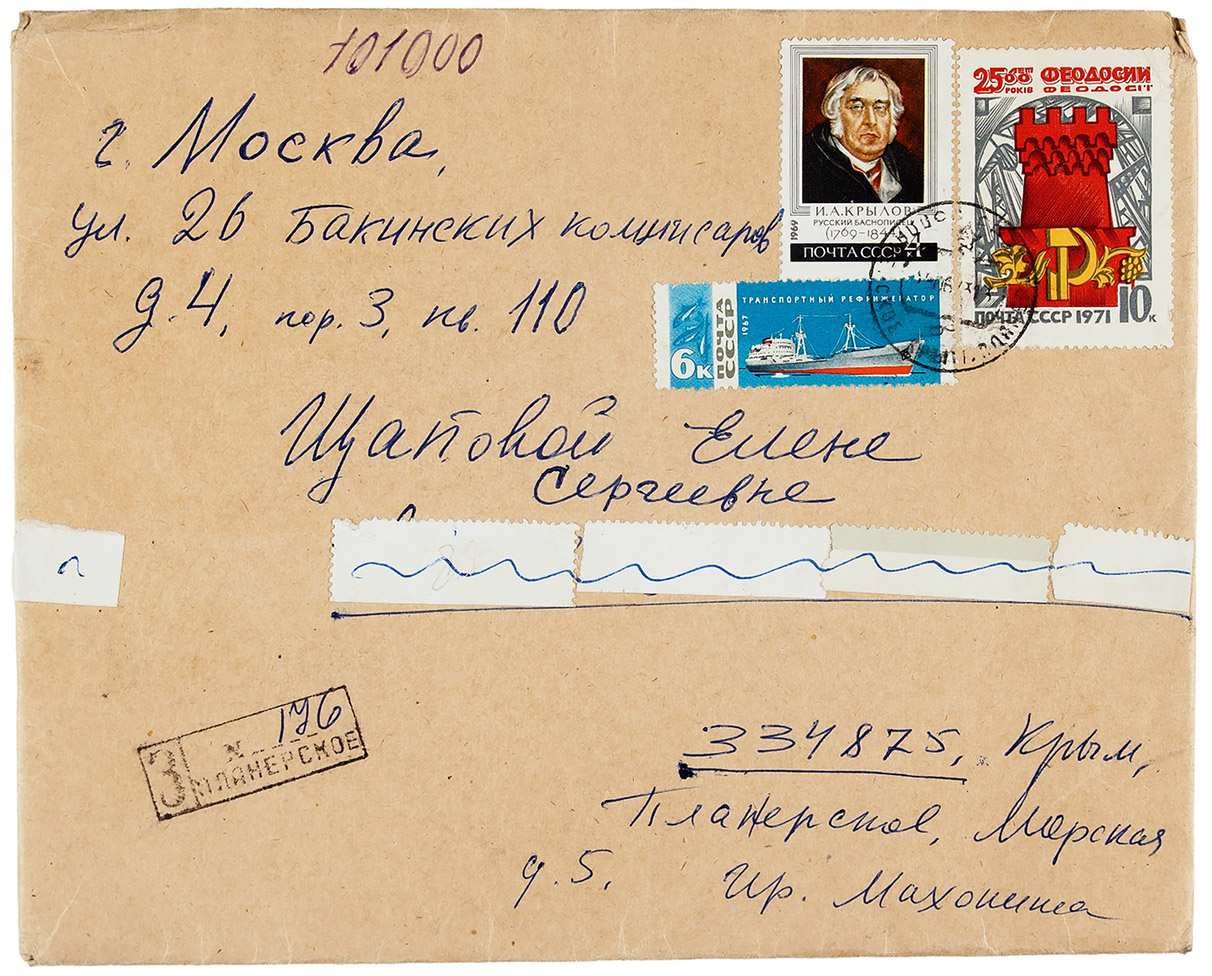 101000
г. Москва,
ул. 26 Бакинских комиссаров
д. 4, пор. 3, кв. 110
25оо лет Феодосии
років Феодосії
И.А.КРЫЛОВ
РУССКИЙ БАСНОПИСЕЦ
(1769–1844)
1969
ПОЧТА СССР 4к
ПОЧТА СССР 1971 10к
ТРАНСПОРТНЫЙ РЕФРИЖЕРАТОР
6к ПОЧТА СССР 1967
Щаповой Елене
Сергеевне
З № 176
ПЛАНЕРСКОЕ
334875, Крым,
Планерское, Морская
д. 5. Ир. Махонина